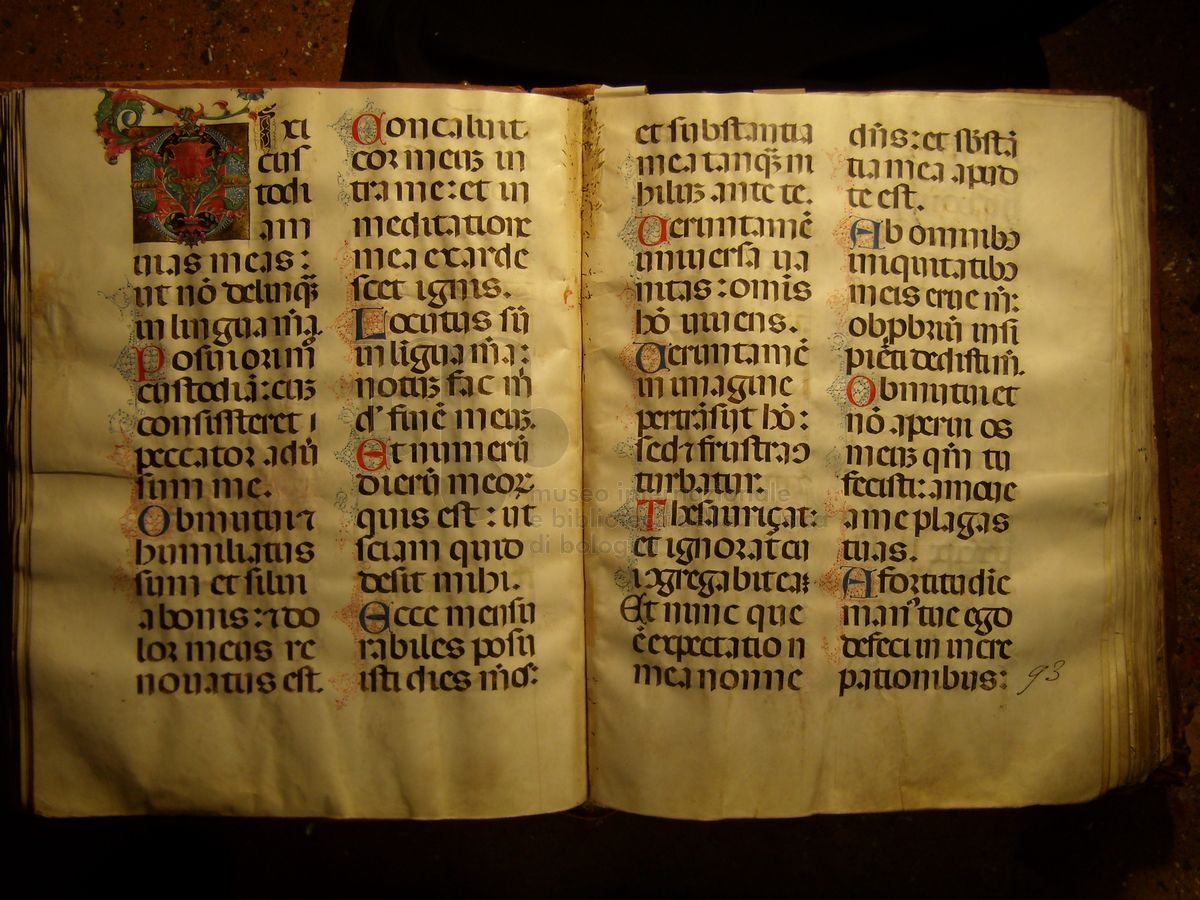 Dixi
cus
todi
am
uias meas:
ut nō delinqꝫ
in lingua m̄a.
Posui ori m̄
custodiā: cuꝫ
consisteret i
peccator adū
sum me.
Obmutui ⁊
humiliatus
sum et silui
a bonis: ⁊ do
lor meus re
nouatus est.
Concaluit
cor meuꝫ in
tra me: et in
meditatione
mea exarde
scet ignis.
Locutus sū
in ligua m̄a:
notuꝫ fac m̄
d' finē meuꝫ.
Et numerū
dierū meoꝝ
quis est: ut
sciam quid
desit mihi.
Ecce mensu
rabiles posu
isti dies m̄os:
et substantia
mea tanqꝫ ni
hiluꝫ ante te.
Ueruntamē
uniuersa ua
nitas: omīs
hō uiuens.
Ueruntamē
in imagine
pertrāsijt hō:
sed ⁊ frustra ↄ
turbatur.
Thesauriçat:
et ignorat cui
ↄgregabit ea:
Et nunc que
ē expectatio
mea nonne
dn̄s: et sb̄stā
tia mea apud
te est.
Ab omnibꝰ
iniquitatibꝰ
meis erue m̄:
obpbriū insi
piēti dedisti m̄.
Obmutui et
nō aperui os
meuꝫ qm̄ tu
fecisti: amoue
a me plagas
tuas.
A fortitudie
manꝰ tue ego
defeci in incre
pationibus:
93
museo internazionale
e biblioteca
di bologna